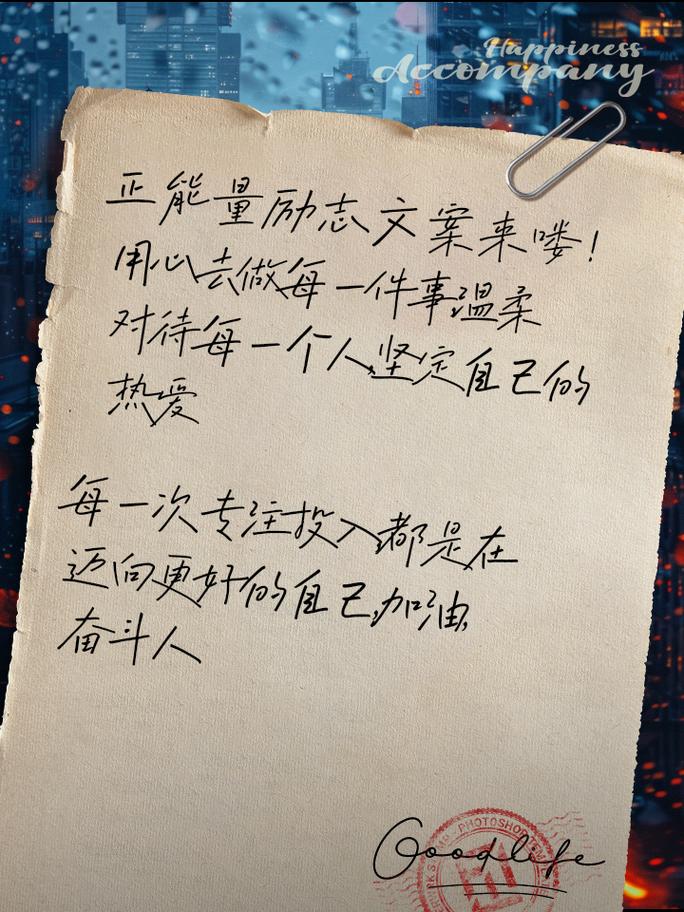 Happiness
Accompany
正能量励志文案来喽!
用心去做每一件事温柔
对待每一个人,坚定自己的
热爱
每一次专注投入,都是在
迈向更好的自己,加油,
奋斗人
PHOTOSHOP
Goodlife